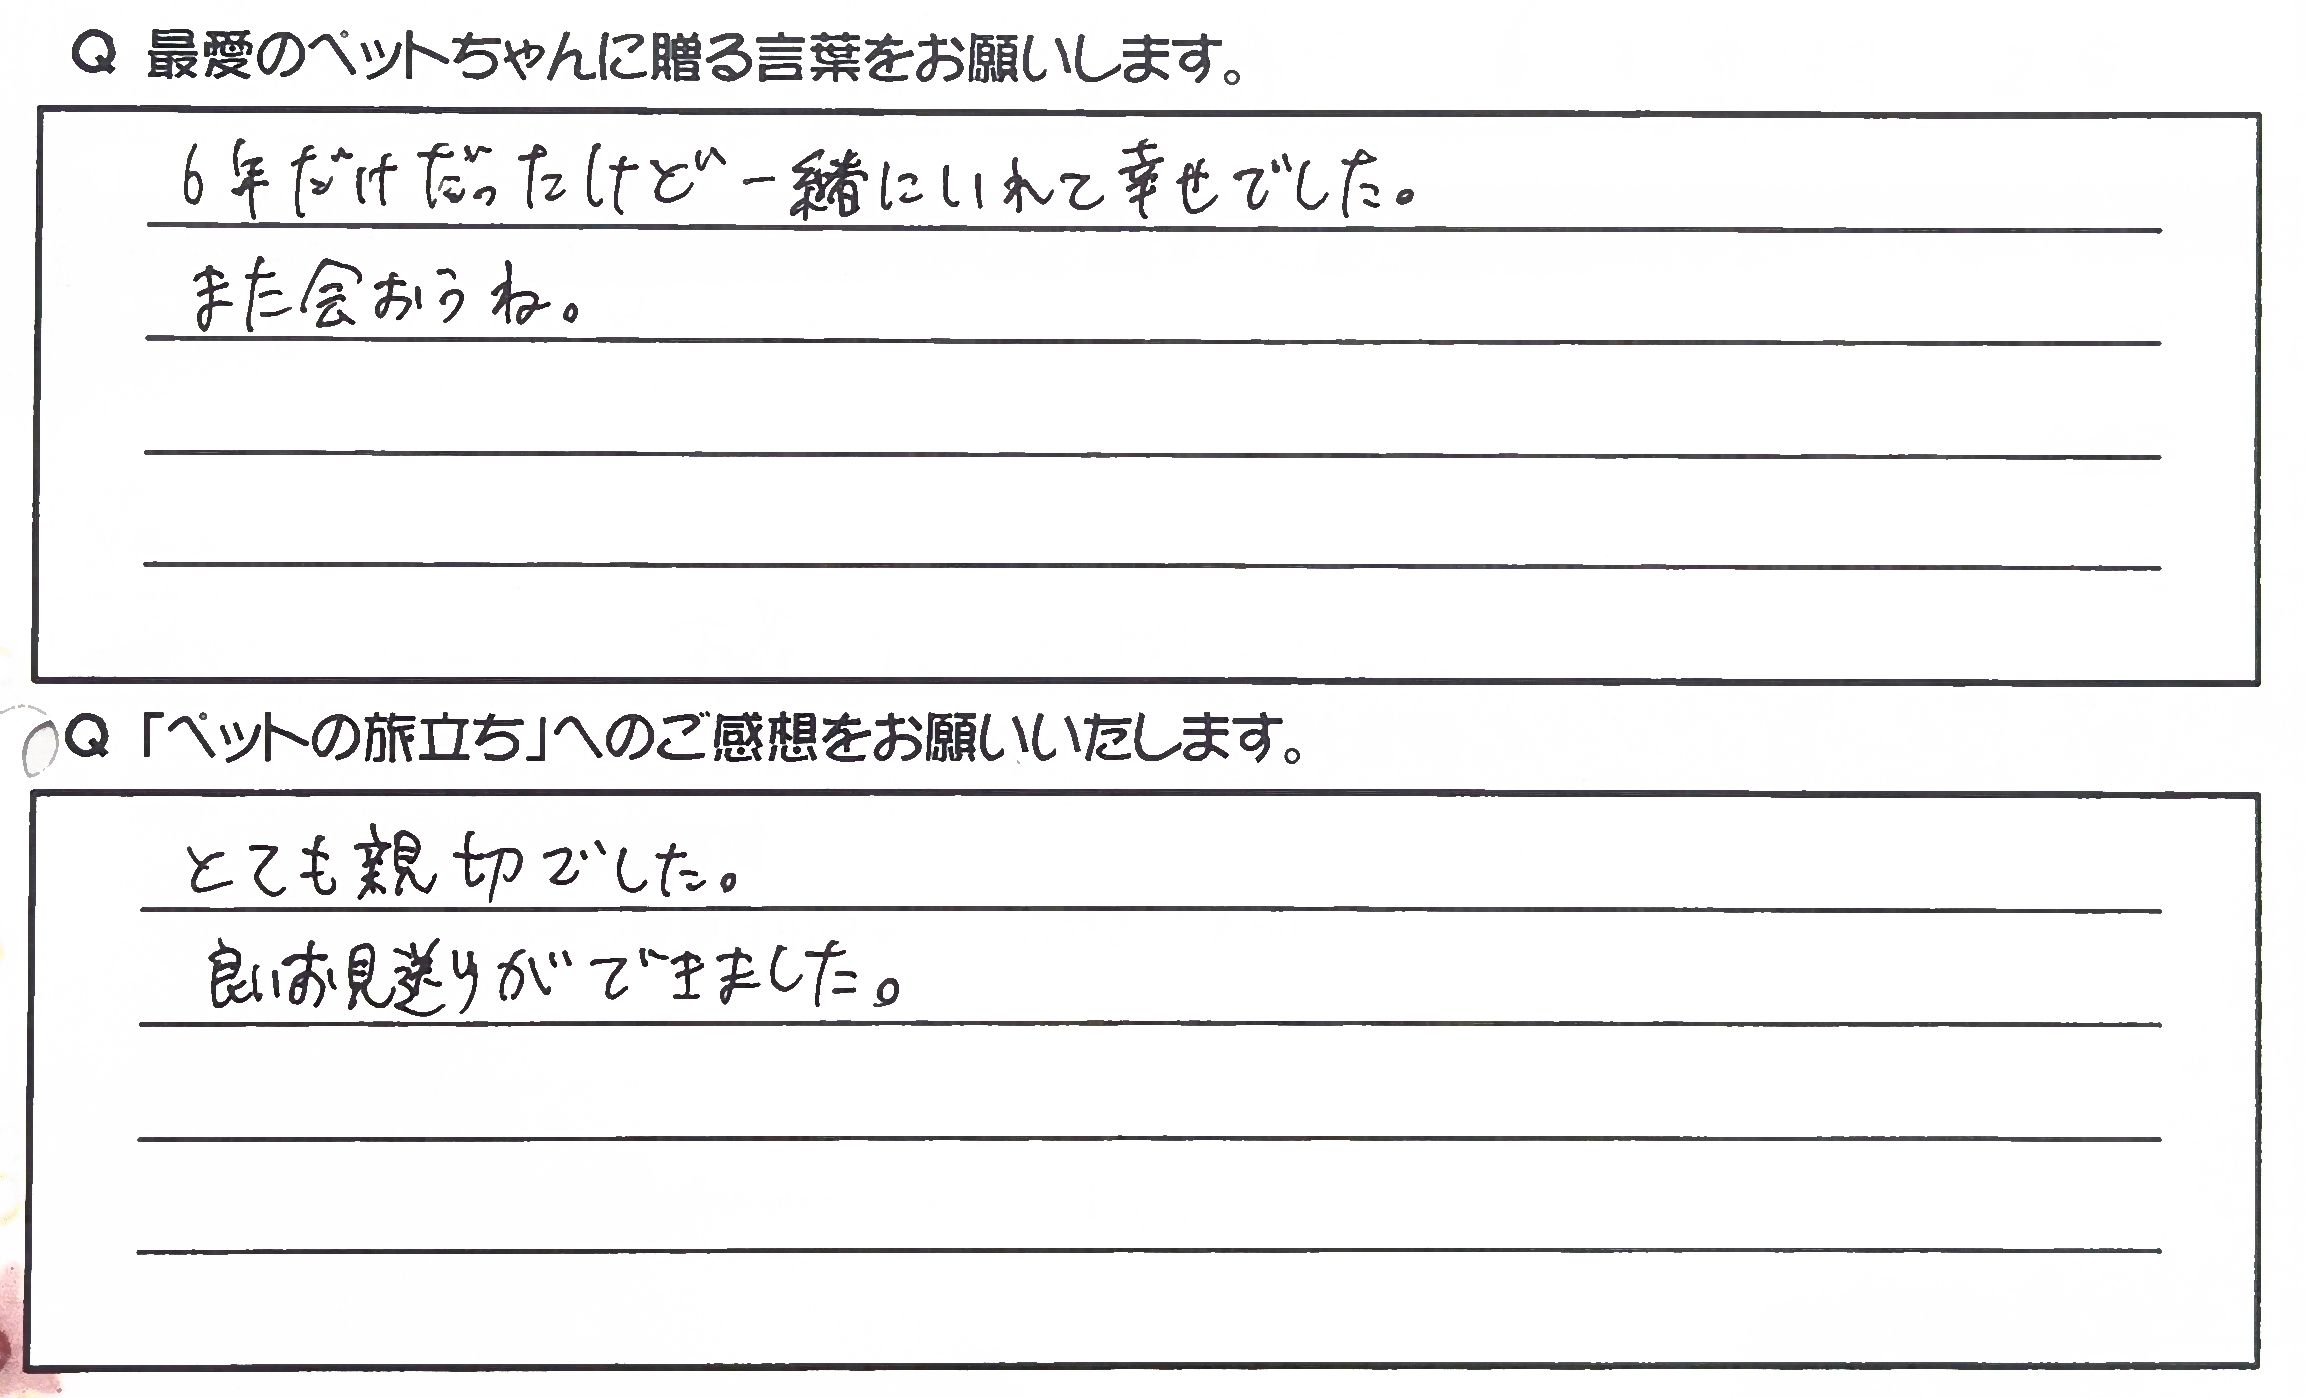 Q 最愛のペットちゃんに贈る言葉をお願いします。
6年だけだったけど一緒にいれて幸せでした。
また会おうね。
Q 「ペットの旅立ち」へのご感想をお願いいたします。
とても親切でした。
良いお見送りができました。